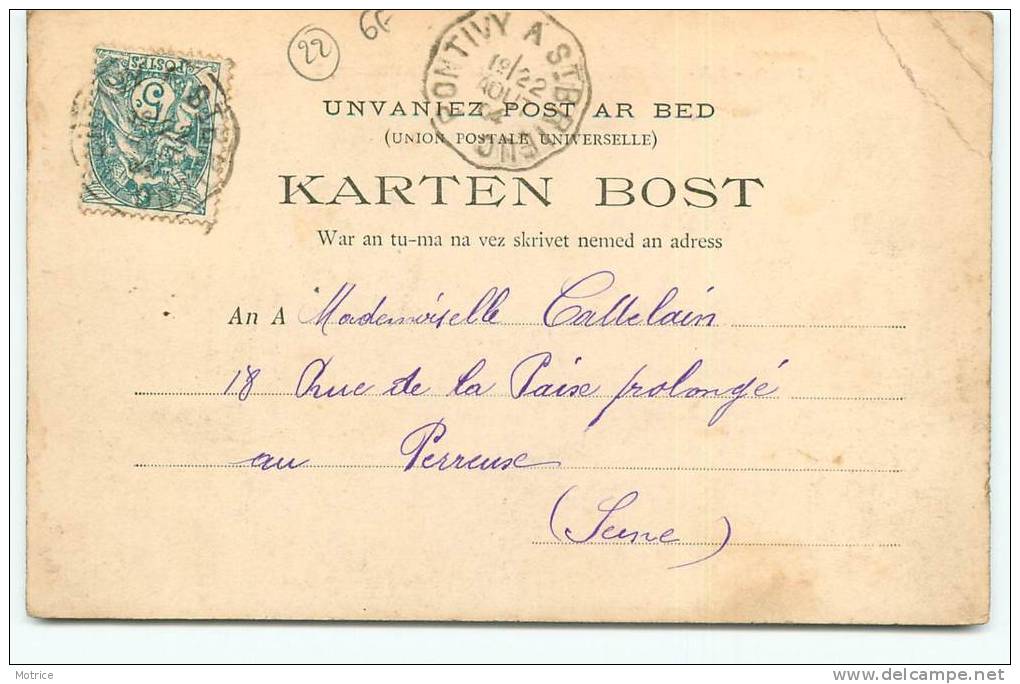 22
PONTIVY A ST BRIEUC
19/22
AOUT
04
POSTES
5
UNVANIEZ POST AR BED
(UNION POSTALE UNIVERSELLE)
KARTEN BOST
War an tu-ma na vez skrivet nemed an adress
An A Mademoiselle Cattelain
18 Rue de la Paise prolongé
au Perreuse
(Seine)
Motrice
www.delcampe.net